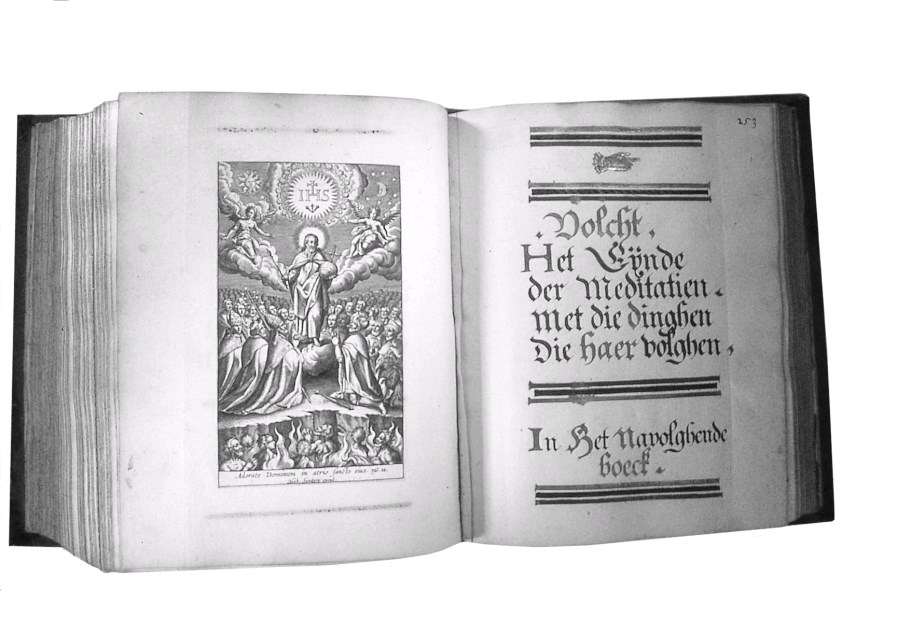 IHS
Adorate Dominum in atrio sancto eius psl.
253
Volcht.
Het Eÿnde
der Meditatien.
Met die dinghen
Die haer volghen,
In Het Navolghende
boeck.